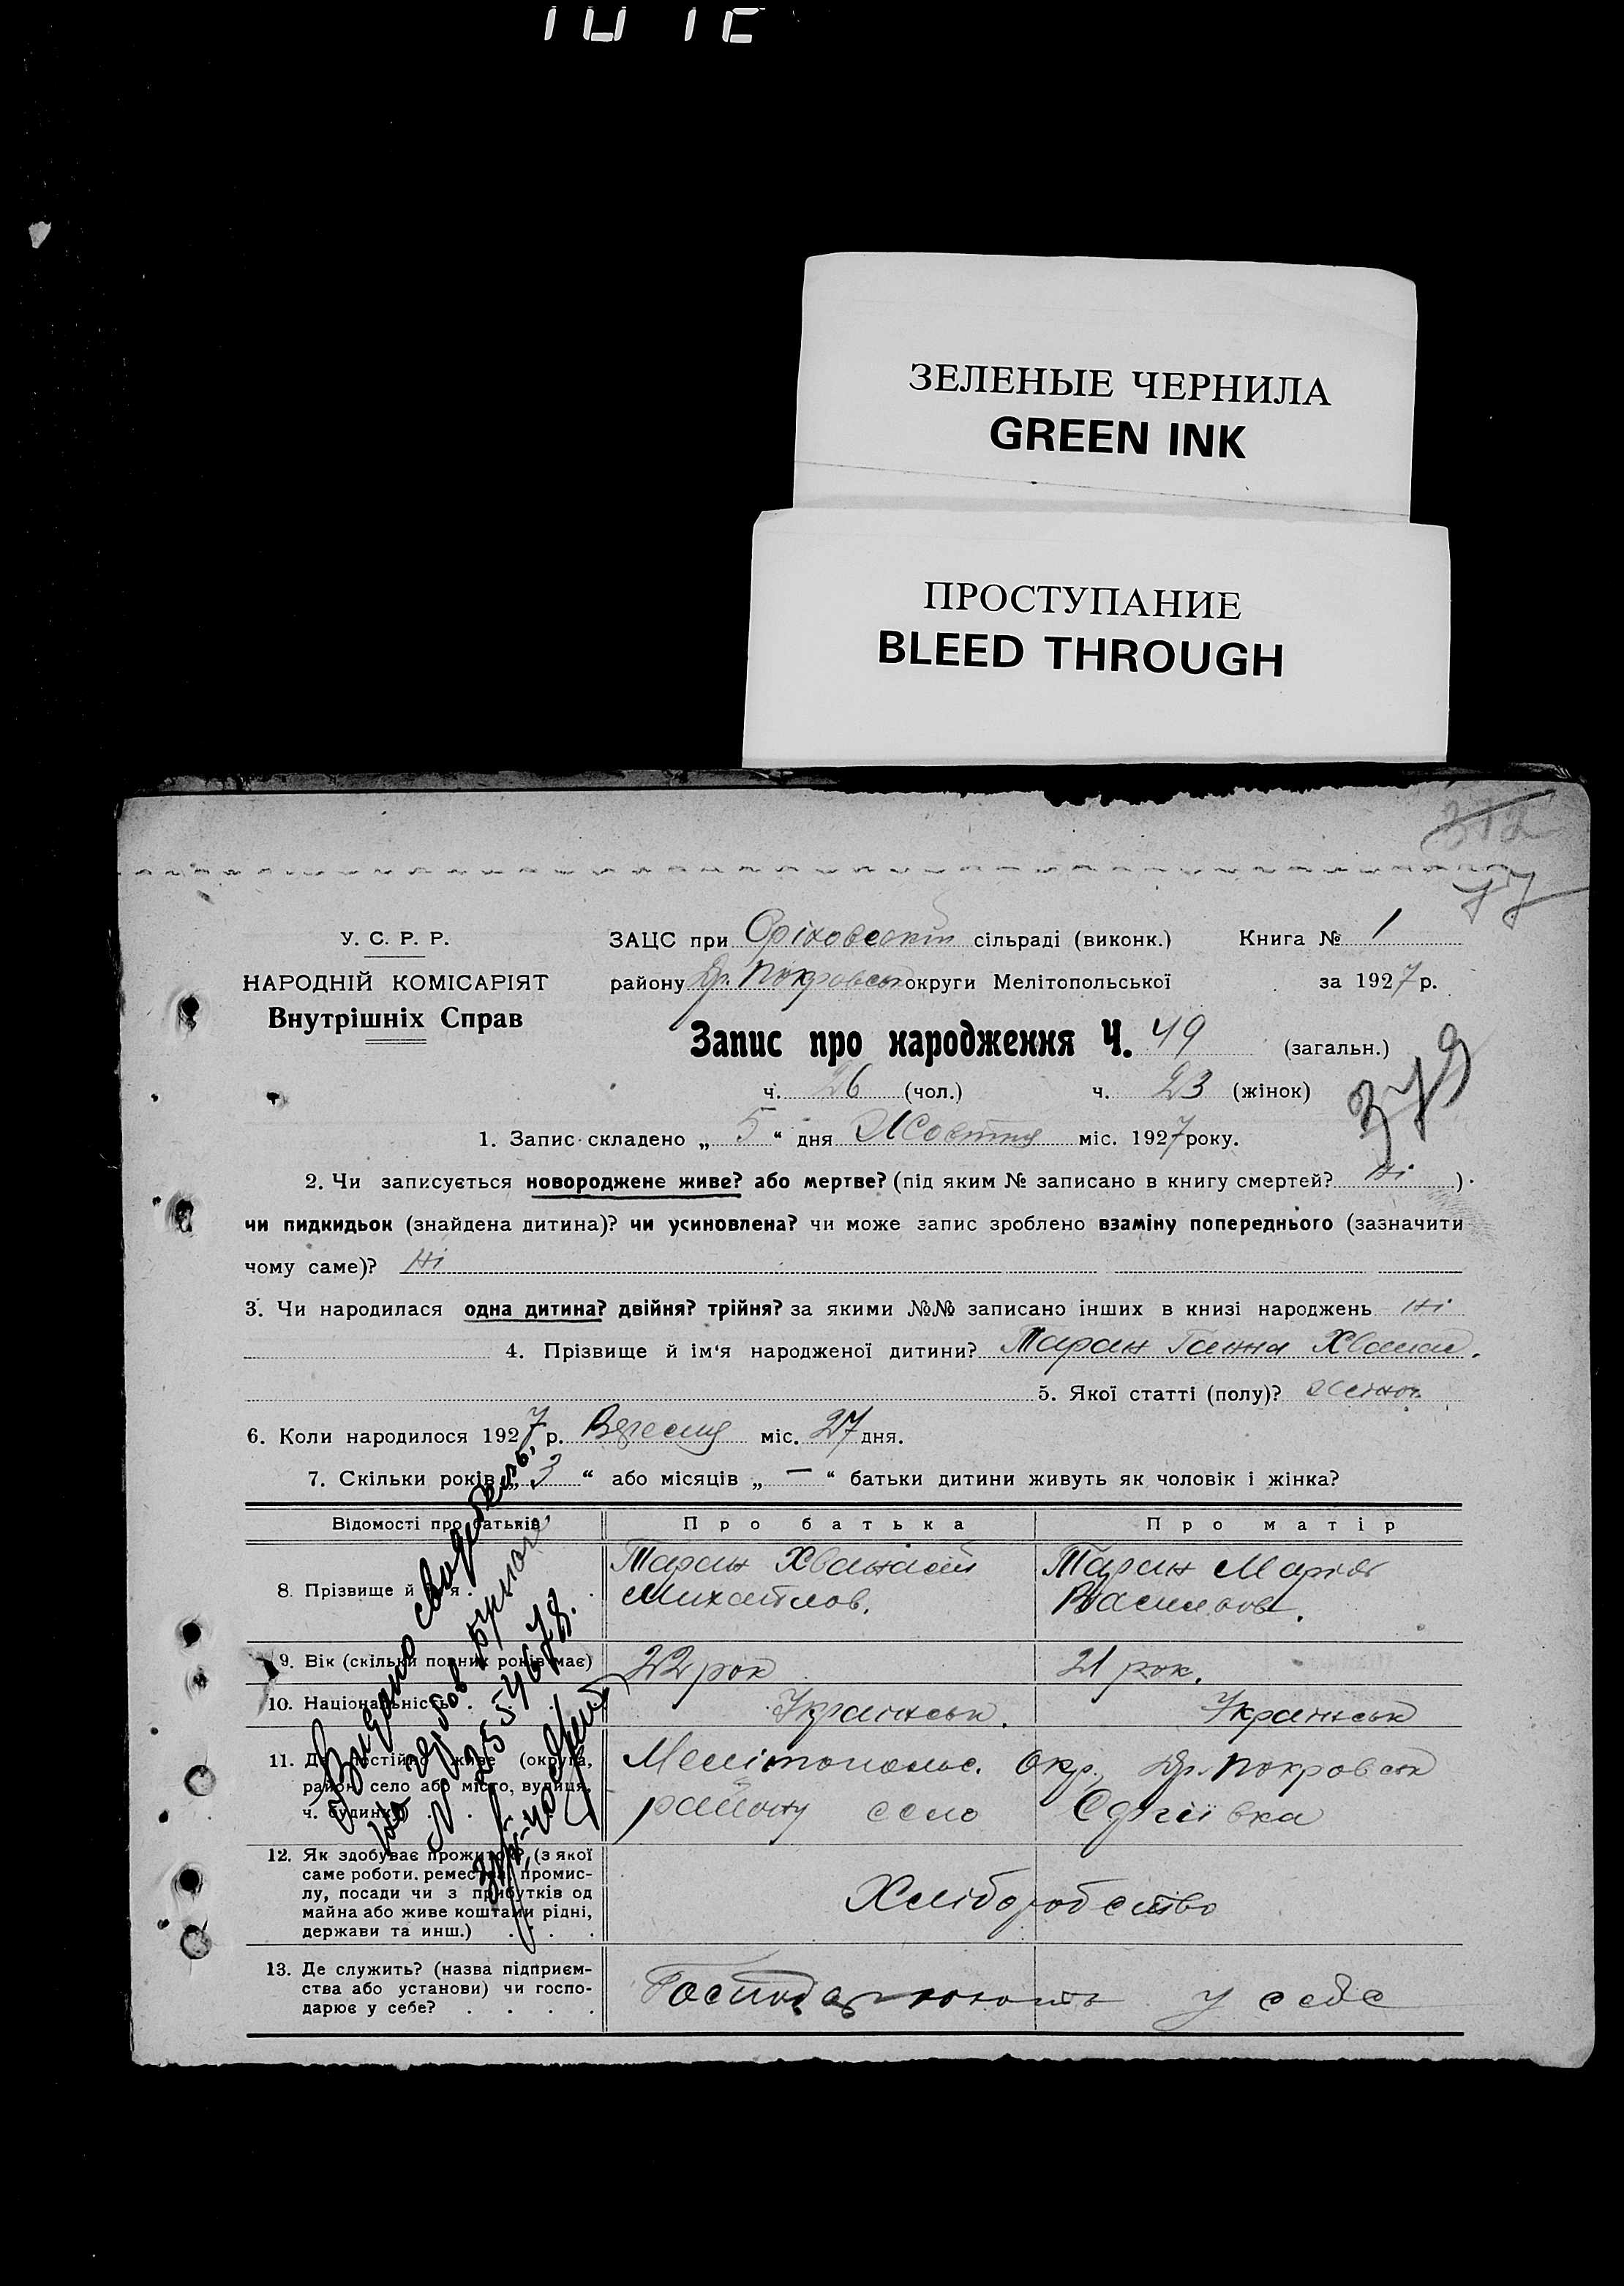 ЗЕЛЕНЫЕ ЧЕРНИЛА
GREEN INK
ПРОСТУПАНИЕ
BLEED THROUGH
312
77
У. С. Р. Р.
НАРОДНІЙ КОМІСАРІЯТ
Внутрішніх Справ
ЗАЦС при Оріховській сільраді (виконк.) Книга № 1
району Др. Покровськ округи Мелітопольської за 1927 р.
Запис про народження Ч. 49 (загальн.)
379
ч. 26 (чол.) ч. 23 (жінок)
1. Запис складено „ 5 “ дня Жовтня міс. 1927 року.
2. Чи записується новороджене живе? або мертве? (під яким № записано в книгу смертей? Ні ).
чи пидкидьок (знайдена дитина)? чи усиновлена? чи може запис зроблено взаміну попереднього (зазначити
чому саме)? Ні
3. Чи народилася одна дитина? двійня? трійня? за якими №№ записано інших в книзі народжень Ні
4. Прізвище й ім‘я народженої дитини? Таран Ганна Хванас.
5. Якої статті (полу)? жіноч.
6. Коли народилося 1927 р. Вересня міс. 27 дня.
7. Скільки років „ 3 “ або місяців „ — “ батьки дитини живуть як чоловік і жінка?
Відомості про батьків Про батька Про матір
8. Прізвище й ім‘я . Таран Хванасій Таран Марія
Михайлов. Василов.
9. Вік (скільки повних років має) 22 рок 21 рок.
10. Національність . Українськ. Українськ
11. Де постійно живе (округа, Мелітопольс. Окр., Др. Покровськ
район, село або місто, вулиця, району село Сергіївка
ч. будинку) . . .
12. Як здобуває прожиток? (з якої
саме роботи, ремества, промис-
лу, посади чи з прибутків од
майна або живе коштами рідні,
держави та инш.) . . .
Хліборобство
13. Де служить? (назва підприєм-
ства або установи) чи госпо-
дарює у себе? . . . .
Господарюють у себе
Видано свидетель,